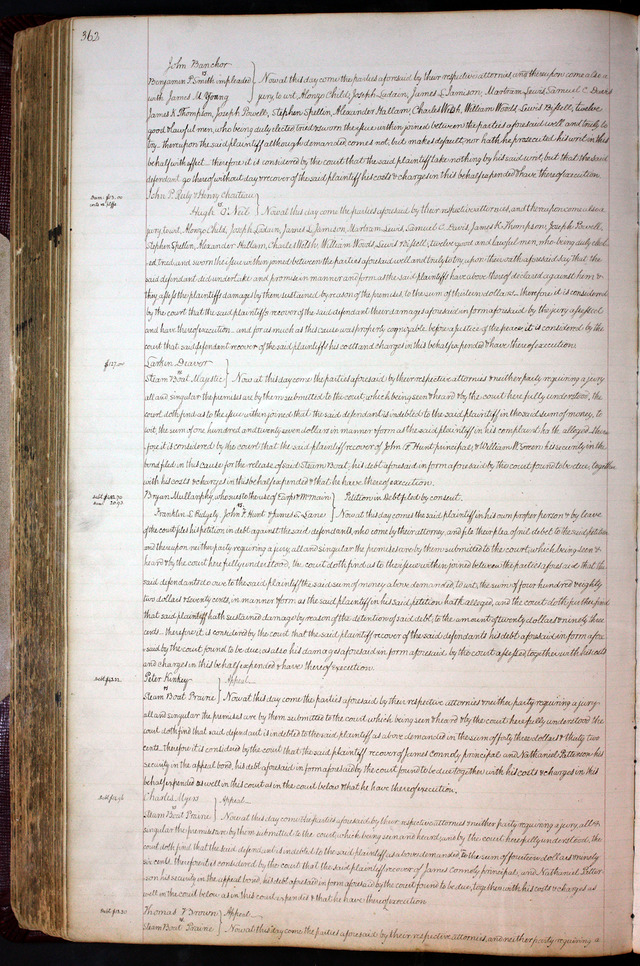 363
John Banchor
vs
Benjamin P. Smith impleaded } Now at this day come the parties aforesaid by their respective attornies and thereupon come also a
with James M Young } jury to wit, Alonzo Child, Joseph Ladein, James L Jamison, Martram Lewis, Samuel C. Davis
James R Thompson, Joseph Powell, Stephen Spellin, Alexander Hallam, Charles Welsh, William Woods, Lewis Bissell, twelve
good & lawful men, who being duly elected tried & sworn the issue within joined between the parties aforesaid well and truly to
try. thereupon the said plaintiff although demanded comes not, but makes default, nor hath he prosecuted his writ in this
behalf with effect. therefore it is considered by the court that the said plaintiff take nothing by his said writ, but that the said
defendant go thereof without day & recover of the said plaintiff his costs & charges in this behalf expended & have thereof execution.
John P. Reily & Henry Chouteau }
vs
Hugh O'Neil } Now at this day come the parties aforesaid by their respective attornies, and thereupon come also a
jury, to wit, Alonzo Child, Joseph Ladein, James L Jamison, Martram Lewis, Samuel C. Davis, James R Thompson, Joseph Powell,
Stephen Spellin, Alexander Hallam, Charles Welsh, William Woods, Lewis Bissell, twelve good and lawful men, who being duly elect-
ed tried and sworn the issue within joined between the parties aforesaid well and truly to try, upon their oath aforesaid say that the
said defendant did undertake and promise in manner and form as the said plaintiffs have above thereof declared against him, &
they assess the plaintiffs damages by them sustained by reason of the premises, to the sum of thirteen dollars. therefore it is considered
by the court that the said plaintiffs recover of the said defendant their damages aforesaid in form aforesaid by the jury assessed
and have thereof execution. and for as much as this cause was properly cognizable before a justice of the peace it is considered by the
court that said defendant recover of the said plaintiffs his costs and charges in this behalf expended & have thereof execution.
$127.00
Larkin Deaver }
vs
Steam Boat Majestic } Now at this day come the parties aforesaid by their respective attornies & neither party requiring a jury
all and singular the premises are by them submitted to the court, which being seen & heard & by the court here fully understood, the
court doth find as to the issue within joined that the said defendant is indebted to the said plaintiff in the said sum of money, to
wit, the sum of one hundred and twenty seven dollars in manner & form as the said plaintiff in his complaint hath alleged. There-
fore it is considered by the court that the said plaintiff recover of John F Hunt principal, & William R. his security in the
bond filed in this cause for the release of said Steam Boat, his debt aforesaid in form aforesaid by the court found to be due, together
with his costs & charges in this behalf expended & that he have thereof execution.
Bryan Mullanphy, who sues to the use of & } Petition in Debt filed by consent.
vs
Franklin L Ridgely, John F Hunt & James C. Lane } Now at this day comes the said plaintiff in his own proper person & by leave
of the court files his petition in debt against the said defendants, who come by their attorney, and file their plea of nil debet to the said petition
and thereupon neither party requiring a jury, all and singular the premises are by them submitted to the court, which being seen &
heard & by the court here fully understood, the court doth find as to the issue within joined between the parties aforesaid that the
said defendants do owe to the said plaintiff the said sum of money above demanded, to wit, the sum of four hundred eighty
two dollars & seventy cents, in manner & form as the said plaintiff in his said petition hath alleged, and the court doth further find
that said plaintiff hath sustained damage by reason of the detention of said debt, to the amount of twenty dollars & ninety three
cents. therefore it is considered by the court that the said plaintiff recover of the said defendants his debt aforesaid in form afore-
said by the court found to be due, as also his damages aforesaid in form aforesaid by the court assessed together with his costs
and charges in this behalf expended & have thereof execution.
Peter Kinkey } Appeal
vs
Steam Boat Prairie } Now at this day come the parties aforesaid by their respective attornies & neither party requiring a jury
all and singular the premises are by them submitted to the court which being seen & heard & by the court here fully understood the
court doth find that said defendant is indebted to the said plaintiff as above demanded in the sum of forty three dollars & thirty two
cents. therefore it is considered by the court that the said plaintiff recover of James Connoly principal and Nathaniel Patterson his
security in the appeal bond, his debt aforesaid in form aforesaid by the court found to be due together with his costs & charges in this
behalf expended as well in this court as in the court below & that he have thereof execution.
Charles Myers } Appeal
vs
Steam Boat Prairie } Now at this day come the parties aforesaid by their respective attornies & neither party requiring a jury, all &
singular the premises are by them submitted to the court, which being seen and heard, and by the court here fully understood, the
court doth find that the said defendant is indebted to the said plaintiff as above demanded, to the sum of fourteen dollars & ninety
six cents. therefore it is considered by the court that the said plaintiff recover of James Connoly principal, and Nathaniel Patter-
son his security in the appeal bond, his debt aforesaid in form aforesaid by the court found to be due, together with his costs & charges as
well in the court below as in this court expended & that he have thereof execution
Thomas F Brown } Appeal
vs
Steam Boat Prairie } Now at this day come the parties aforesaid by their respective attornies, and neither party requiring a